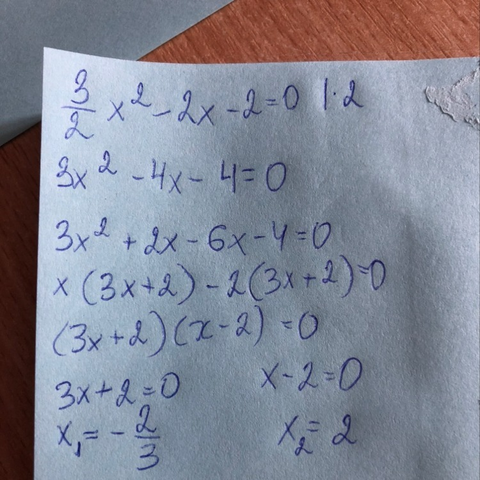 3/2 x² - 2x - 2 = 0 | · 2
3x² - 4x - 4 = 0
3x² + 2x - 6x - 4 = 0
x (3x+2) - 2(3x+2) = 0
(3x+2)(x-2) = 0
3x+2=0 x-2=0
x₁ = - 2/3 x₂ = 2